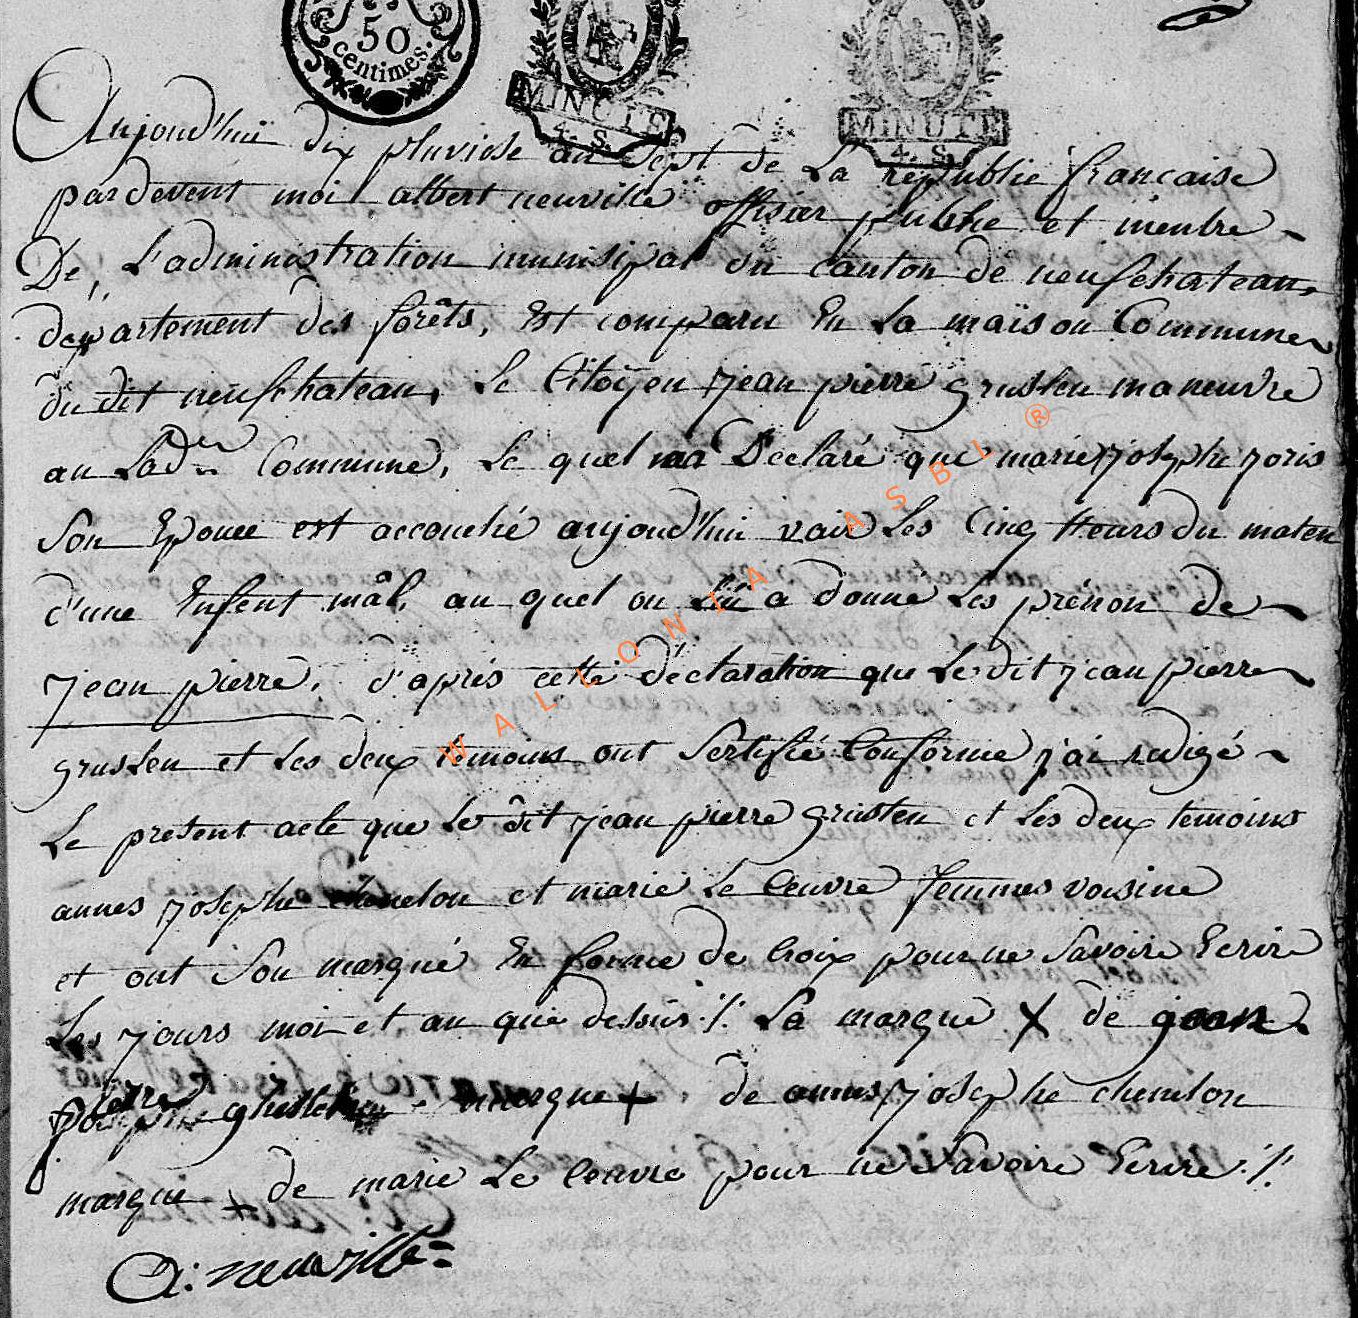 50
centimes.
MINUTE
4. S.
MINUTE
4. S.
Aujourd'hui dix pluviose an sept de La republie francaise
pardevent moi albert neuville offisier publie et menbre
De L'administration munisipal du canton de neufchateau,
departement des forêts, Est comparu En La maïson Commune
du dit neufchateau, Le Citoÿen jean pierre gruslen maneuvre
au Ladte Commune, Le quel a Déclaré que marie josephe joris
Son Epouce est accouché aujourd'hui vair Les Cinq Heurs du maten
d'une Enfent mâl, au quel on Lui a donne Les prénon de
jean pierre, d'aprés cette déclaration que Ledit jean pierre
gruslen et Les deux temoins ont Sertifié Conforme j'ai redigé
Le present acte que Le dit jean pierre gruslen et Les deux temoins
annes josephe chenelon et marie Le Ceuvre femmes voisine
et ont Son marqué En forme de Croix pour ne Savoire Ecrire
Les jours moi et an que dessus ·/. La marque X de jean
pierre marque + de annes josephe chenelon
marque + de marie Le Ceuvre pour ne Savoire Ecrire ·/.
A: neuville
WALLONIA ASBL ®